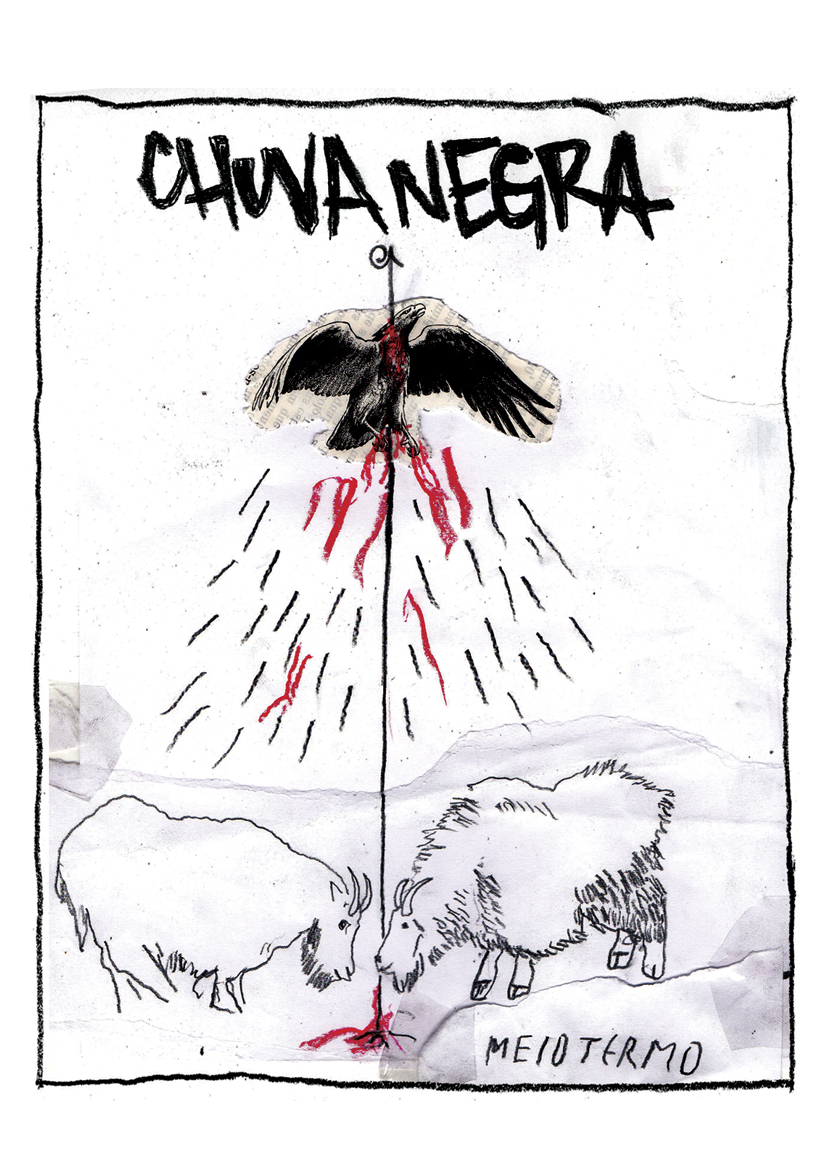 CHUVA NEGRA
MEIO TERMO